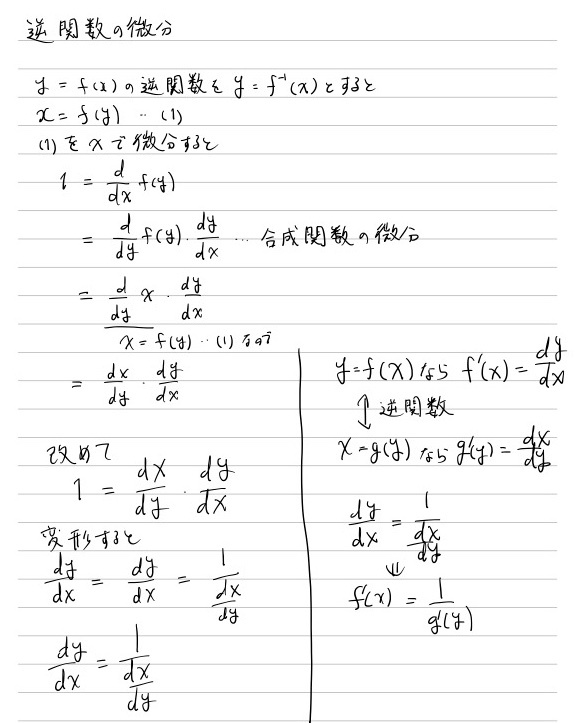 逆関数の微分
y = f(x) の逆関数を y = f⁻¹(x) とすると
x = f(y) … (1)
(1) を x で微分すると
1 = d/dx f(y)
= d/dy f(y) · dy/dx … 合成関数の微分
= d/dy x · dy/dx
x = f(y) … (1) なので
= dx/dy · dy/dx
改めて
1 = dx/dy · dy/dx
変形すると
dy/dx = dy/dx = 1/(dx/dy)
dy/dx = 1/(dx/dy)
y = f(x) なら f'(x) = dy/dx
↕ 逆関数
x = g(y) なら g'(y) = dx/dy
dy/dx = 1/(dx/dy)
⇓
f'(x) = 1/g'(y)